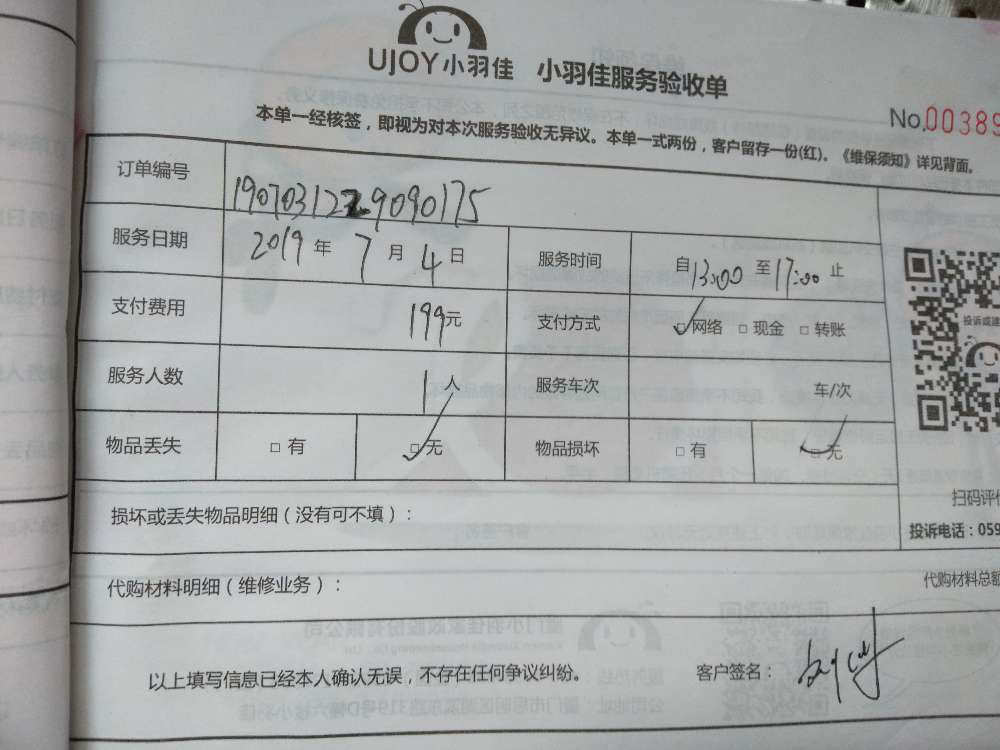 UJOY小羽佳 小羽佳服务验收单
No.00389
本单一经核签，即视为对本次服务验收无异议。本单一式两份，客户留存一份(红)。《维保须知》详见背面。
订单编号 1907031229090175
服务日期 2019年7月4日 服务时间 自13:00至17:00止
支付费用 199元 支付方式 ☑网络 □现金 □转账
服务人数 1人 服务车次 车/次
物品丢失 □有 ☑无 物品损坏 □有 ☑无
投诉或
损坏或丢失物品明细（没有可不填）：
扫码评
投诉电话：059
代购材料明细（维修业务）：
代购材料总
以上填写信息已经本人确认无误，不存在任何争议纠纷。 客户签名：